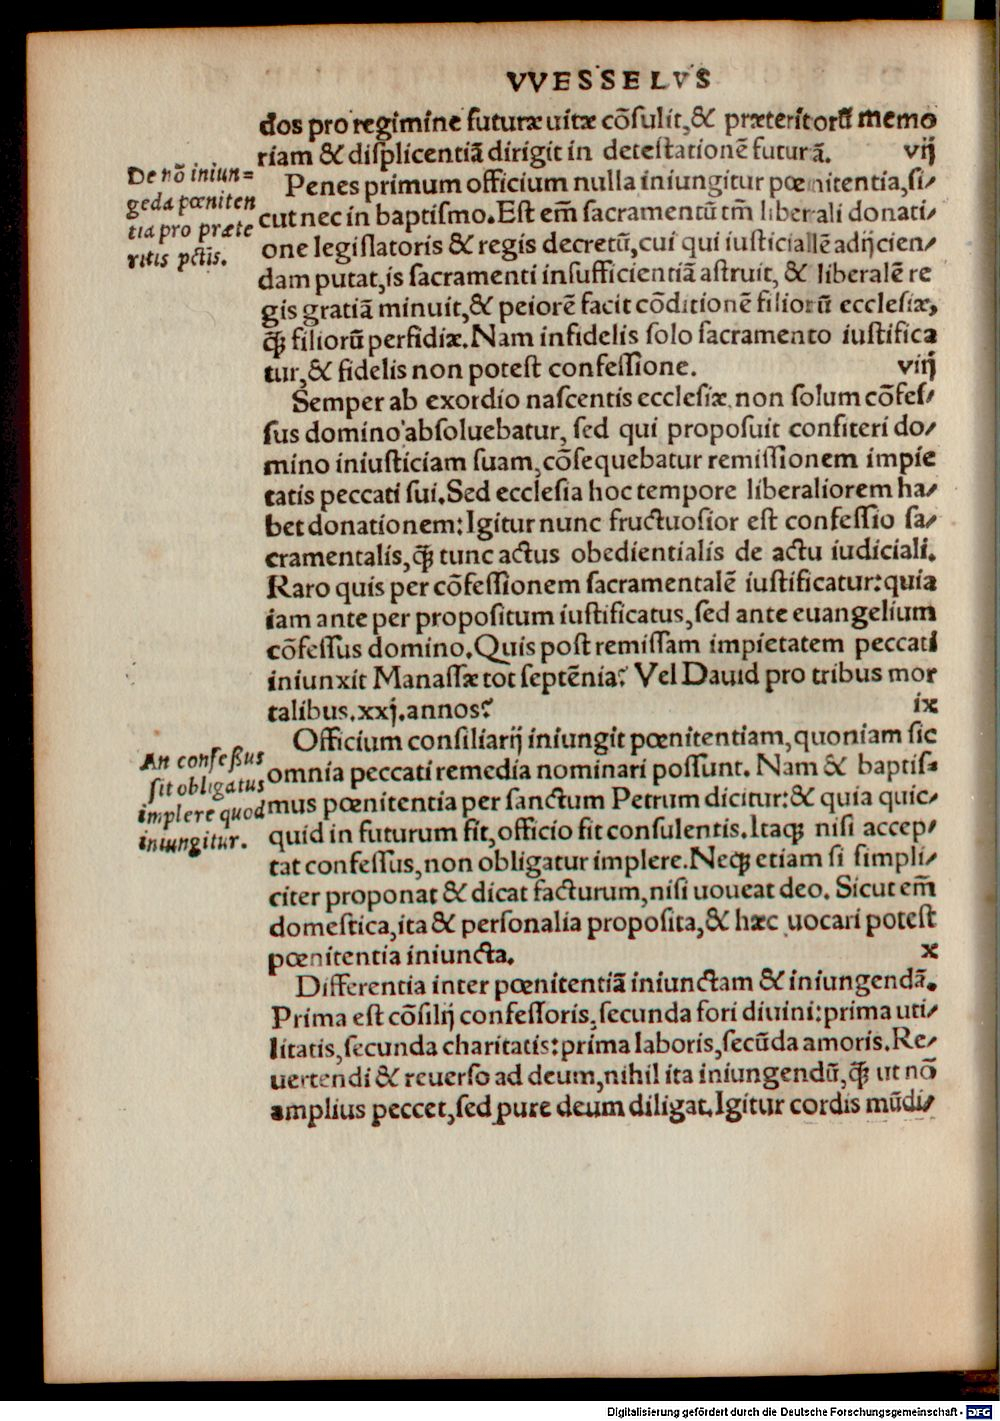 VVESSELVS
dos pro regimine futuræ uitæ cõsulit, & præteritorũ memo
riam & displicentiã dirigit in detestationẽ futurã. vij
De nõ iniun=
geda pœniten
tia pro præte
ritis pctis.
Penes primum officium nulla iniungitur pœnitentia, si/
cut nec in baptismo. Est em̃ sacramentũ tm̃ liberali donati/
one legislatoris & regis decretũ, cui qui iusticiallẽ adijcien/
dam putat, is sacramenti insufficientiã astruit, & liberalẽ re
gis gratiã minuit, & peiorẽ facit cõditionẽ filiorũ ecclesiæ,
q̃ȝ filiorũ perfidiæ. Nam infidelis solo sacramento iustifica
tur, & fidelis non potest confessione. viij
Semper ab exordio nascentis ecclesiæ, non solum cõfes/
sus domino absoluebatur, sed qui proposuit confiteri do/
mino iniusticiam suam, cõsequebatur remissionem impie
tatis peccati sui. Sed ecclesia hoc tempore liberaliorem ha/
bet donationem: Igitur nunc fructuosior est confessio sa/
cramentalis, q̃ȝ tunc actus obedientialis de actu iudiciali.
Raro quis per cõfessionem sacramentalẽ iustificatur: quia
iam ante per propositum iustificatus, sed ante euangelium
cõfessus domino. Quis post remissam impietatem peccati
iniunxit Manassæ tot septẽnia? Vel Dauid pro tribus mor
talibus .xxj. annos? ix
An confeßus
sit obligatus
implere quod
iniungitur.
Officium consiliarij iniungit pœnitentiam, quoniam sic
omnia peccati remedia nominari possunt. Nam & baptis=
mus pœnitentia per sanctum Petrum dicitur: & quia quic/
quid in futurum fit, officio fit consulentis. Itaqȝ nisi accep/
tat confessus, non obligatur implere. Neqȝ etiam si simpli/
citer proponat & dicat facturum, nisi uoueat deo. Sicut em̃
domestica, ita & personalia proposita, & hæc uocari potest
pœnitentia iniuncta. x
Differentia inter pœnitentiã iniunctam & iniungendã.
Prima est cõsilij confessoris, secunda fori diuini: prima uti/
litatis, secunda charitatis: prima laboris, secũda amoris. Re/
uertendi & reuerso ad deum, nihil ita iniungendũ, q̃ȝ ut nõ
amplius peccet, sed pure deum diligat. Igitur cordis mũdi/
Digitalisierung gefördert durch die Deutsche Forschungsgemeinschaft - DFG